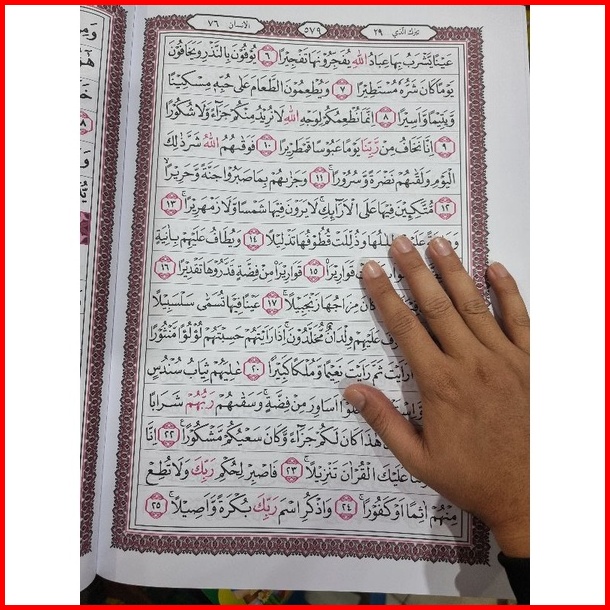 تبرك الذي ٢٩ ٥٧٩ الانسان ٧٦
عَيْنًا يَّشْرَبُ بِهَا عِبَادُ اللّٰهِ يُفَجِّرُوْنَهَا تَفْجِيْرًا ٦ يُوْفُوْنَ بِالنَّذْرِ وَيَخَافُوْنَ
يَوْمًا كَانَ شَرُّهٗ مُسْتَطِيْرًا ٧ وَيُطْعِمُوْنَ الطَّعَامَ عَلٰى حُبِّهٖ مِسْكِيْنًا
وَّيَتِيْمًا وَّاَسِيْرًا ٨ اِنَّمَا نُطْعِمُكُمْ لِوَجْهِ اللّٰهِ لَا نُرِيْدُ مِنْكُمْ جَزَاۤءً وَّلَا شُكُوْرًا
٩ اِنَّا نَخَافُ مِنْ رَّبِّنَا يَوْمًا عَبُوْسًا قَمْطَرِيْرًا ١٠ فَوَقٰىهُمُ اللّٰهُ شَرَّ ذٰلِكَ
الْيَوْمِ وَلَقّٰىهُمْ نَضْرَةً وَّسُرُوْرًا ١١ وَجَزٰىهُمْ بِمَا صَبَرُوْا جَنَّةً وَّحَرِيْرًا
١٢ مُّتَّكِـِٕيْنَ فِيْهَا عَلَى الْاَرَاۤىِٕكِ لَا يَرَوْنَ فِيْهَا شَمْسًا وَّلَا زَمْهَرِيْرًا ١٣
ظِلٰلُهَا وَذُلِّلَتْ قُطُوْفُهَا تَذْلِيْلًا ١٤ وَيُطَافُ عَلَيْهِمْ بِاٰنِيَةٍ
قَوَارِيْرَا۠ ١٥ قَوَارِيْرَا۠ مِنْ فِضَّةٍ قَدَّرُوْهَا تَقْدِيْرًا ١٦
كَانَ مِزَاجُهَا زَنْجَبِيْلًا ١٧ عَيْنًا فِيْهَا تُسَمّٰى سَلْسَبِيْلًا
عَلَيْهِمْ وِلْدَانٌ مُّخَلَّدُوْنَ اِذَا رَاَيْتَهُمْ حَسِبْتَهُمْ لُؤْلُؤًا مَّنْثُوْرًا
رَاَيْتَ ثَمَّ رَاَيْتَ نَعِيْمًا وَّمُلْكًا كَبِيْرًا ٢٠ عٰلِيَهُمْ ثِيَابُ سُنْدُسٍ
اَسَاوِرَ مِنْ فِضَّةٍ وَسَقٰىهُمْ رَبُّهُمْ شَرَابًا
هٰذَا كَانَ لَكُمْ جَزَاۤءً وَّكَانَ سَعْيُكُمْ مَّشْكُوْرًا ٢٢ اِنَّا
عَلَيْكَ الْقُرْاٰنَ تَنْزِيْلًا ٢٣ فَاصْبِرْ لِحُكْمِ رَبِّكَ وَلَا تُطِعْ
مِنْهُمْ اٰثِمًا اَوْ كَفُوْرًا ٢٤ وَاذْكُرِ اسْمَ رَبِّكَ بُكْرَةً وَّاَصِيْلًا ٢٥